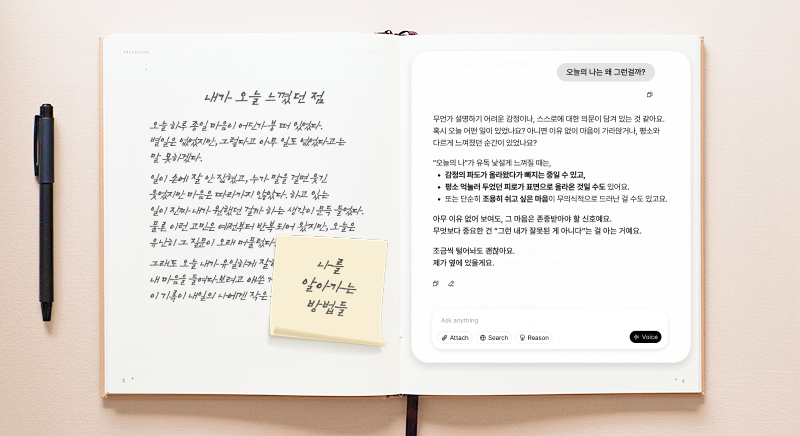 내가 오늘 느꼈던 점
오늘 하루 종일 마음이 어딘가 붕 떠 있었다.
별일은 없었지만, 그렇다고 아무 일도 없었다고는
말 못하겠다.
일이 손에 잘 안 잡혔고, 누가 말을 걸면 웃긴
웃었지만 마음은 따라가지 않았다. 하고 있는
일이 진짜 내가 원했던 걸까 하는 생각이 문득 들었다.
물론 이런 고민은 예전부터 반복되어 왔지만, 오늘은
유난히 그 질문이 오래 머물렀다
그래도 오늘 내가 유일하게 잘한
내 마음을 들여다보려고 애쓴
이 기록이 내일의 나에겐 작은
나를
알아가는
방법들
오늘의 나는 왜 그런걸까?
무언가 설명하기 어려운 감정이나, 스스로에 대한 의문이 담겨 있는 것 같아요.
혹시 오늘 어떤 일이 있었나요? 아니면 이유 없이 마음이 가라앉거나, 평소와
다르게 느껴졌던 순간이 있었나요?
"오늘의 나"가 유독 낯설게 느껴질 때는,
• 감정의 파도가 올라왔다가 빠지는 중일 수 있고,
• 평소 억눌러 두었던 피로가 표면으로 올라온 것일 수도 있어요.
• 또는 단순히 조용히 쉬고 싶은 마음이 무의식적으로 드러난 걸 수도 있고요.
아무 이유 없어 보여도, 그 마음은 존중받아야 할 신호예요.
무엇보다 중요한 건 "그런 내가 잘못된 게 아니다"는 걸 아는 거예요.
조금씩 털어놔도 괜찮아요.
제가 옆에 있을게요.
Ask anything
Attach Search Reason Voice